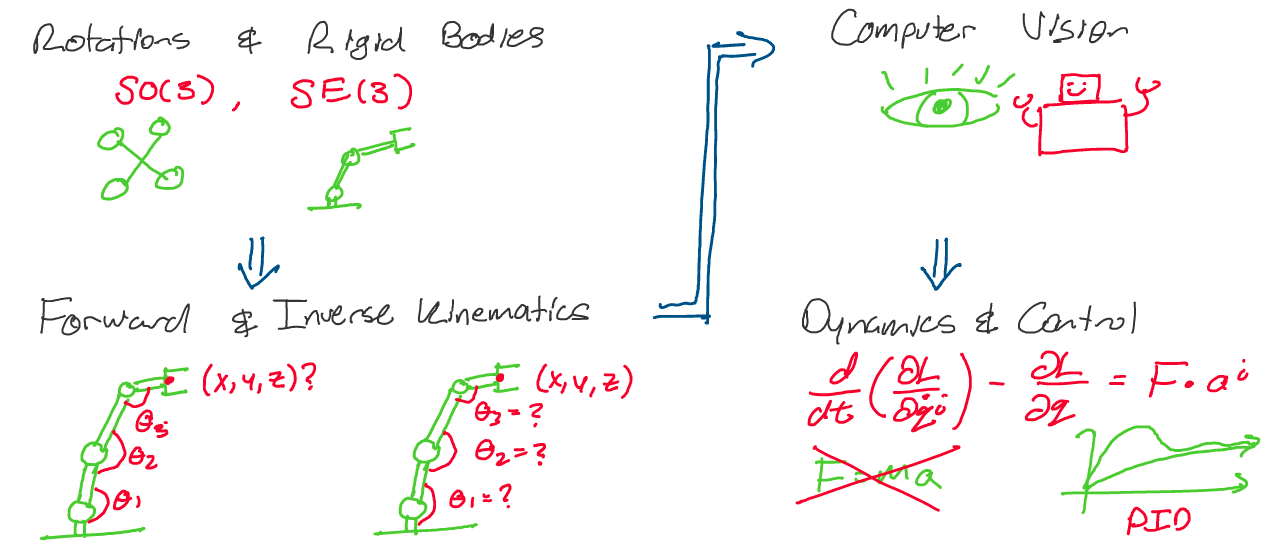 Rotations & Rigid Bodies
SO(3), SE(3)
Forward & Inverse Kinematics
(x, y, z)?
θ3
θ2
θ1
(x, y, z)
θ3 = ?
θ2 = ?
θ1 = ?
Computer Vision
Dynamics & Control
d/dt (∂L/∂q̇i) - ∂L/∂q = F · ai
F = ma
PID